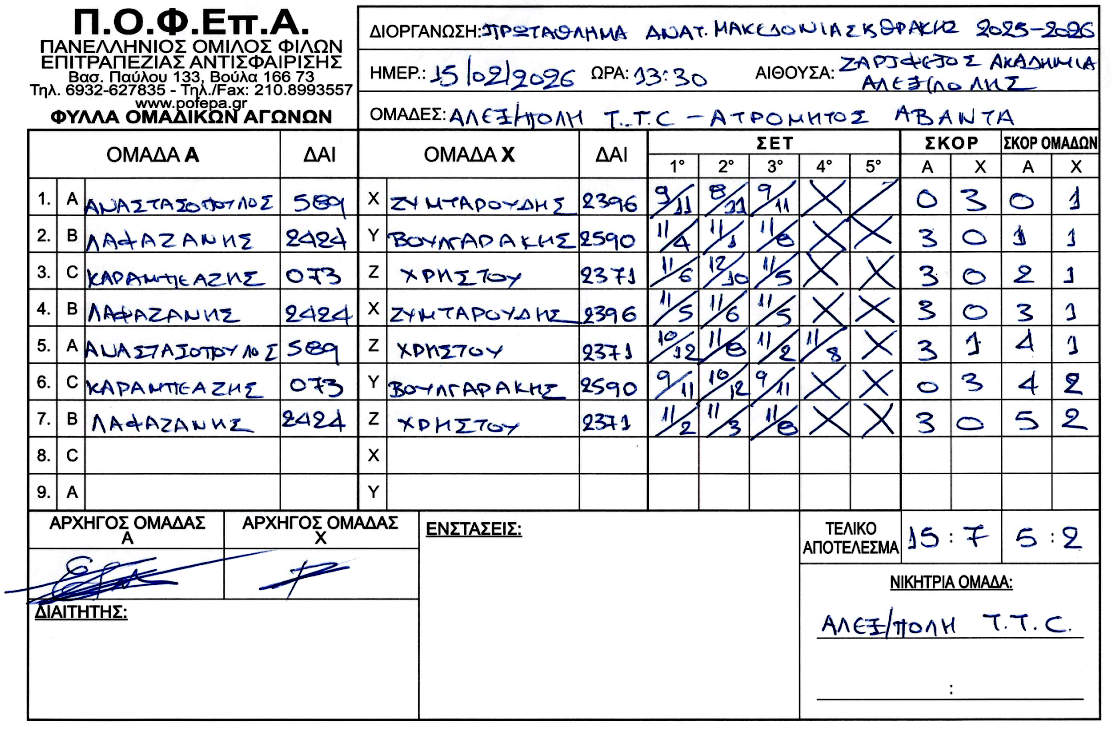 Π.Ο.Φ.Επ.Α.
ΠΑΝΕΛΛΗΝΙΟΣ ΟΜΙΛΟΣ ΦΙΛΩΝ
ΕΠΙΤΡΑΠΕΖΙΑΣ ΑΝΤΙΣΦΑΙΡΙΣΗΣ
Βασ. Παύλου 133, Βούλα 166 73
Τηλ. 6932-627835 - Τηλ./Fax: 210.8993557
www.pofepa.gr
ΦΥΛΛΑ ΟΜΑΔΙΚΩΝ ΑΓΩΝΩΝ
ΔΙΟΡΓΑΝΩΣΗ: ΠΡΩΤΑΘΛΗΜΑ ΑΝΑΤ. ΜΑΚΕΔΟΝΙΑΣ Κ ΘΡΑΚΗΣ 2025-2026
ΗΜΕΡ.: 15/02/2026 ΩΡΑ: 13:30 ΑΙΘΟΥΣΑ: ΑΚΑΔΗΜΙΑ
ΑΛΕΞ/ΠΟΛΗΣ
ΟΜΑΔΕΣ: ΑΛΕΞ/ΠΟΛΗ T.T.C - ΑΤΡΟΜΗΤΟΣ ΑΒΑΝΤΑ
ΟΜΑΔΑ Α ΔΑΙ ΟΜΑΔΑ Χ ΔΑΙ ΣΕΤ ΣΚΟΡ ΣΚΟΡ ΟΜΑΔΩΝ
1° 2° 3° 4° 5° Α Χ Α Χ
1. A ΑΝΑΣΤΑΣΟΠΟΥΛΟΣ 589 X ΖΥΜΤΑΡΟΥΔΗΣ 2396 9/11 8/11 9/11 X / 0 3 0 1
2. B ΛΑΦΑΖΑΝΗΣ 2424 Y ΒΟΥΛΓΑΡΑΚΗΣ 2590 11/4 11/1 11/8 X X 3 0 1 1
3. C ΚΑΡΑΜΠΕΑΖΗΣ 073 Z ΧΡΗΣΤΟΥ 2371 11/6 12/10 11/5 X X 3 0 2 1
4. B ΛΑΦΑΖΑΝΗΣ 2424 X ΖΥΜΤΑΡΟΥΔΗΣ 2396 11/5 11/6 11/5 X X 3 0 3 1
5. A ΑΝΑΣΤΑΣΟΠΟΥΛΟΣ 589 Z ΧΡΗΣΤΟΥ 2371 10/12 11/8 11/2 11/8 X 3 1 4 1
6. C ΚΑΡΑΜΠΕΑΖΗΣ 073 Y ΒΟΥΛΓΑΡΑΚΗΣ 2590 9/11 10/12 9/11 X X 0 3 4 2
7. B ΛΑΦΑΖΑΝΗΣ 2424 Z ΧΡΗΣΤΟΥ 2371 11/2 11/3 11/8 X X 3 0 5 2
8. C X
9. A Y
ΑΡΧΗΓΟΣ ΟΜΑΔΑΣ Α ΑΡΧΗΓΟΣ ΟΜΑΔΑΣ Χ ΕΝΣΤΑΣΕΙΣ: ΤΕΛΙΚΟ ΑΠΟΤΕΛΕΣΜΑ 15 : 7 5 : 2
ΝΙΚΗΤΡΙΑ ΟΜΑΔΑ:
ΔΙΑΙΤΗΤΗΣ:
ΑΛΕΞ/ΠΟΛΗ T.T.C.
: